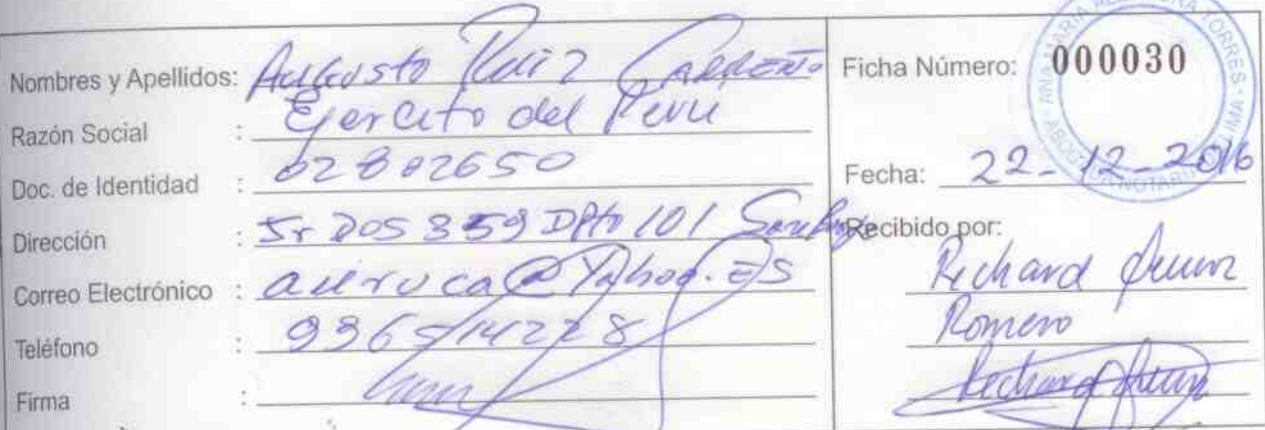 Nombres y Apellidos: Augusto Ruiz Carreño
Razón Social : Ejercito del Peru
Doc. de Identidad : 02802650
Dirección : Jr DOS 359 Dpto 101 San Borja
Correo Electrónico : auruca@Yahoo.ES
Teléfono :
Firma :
Ficha Número: 000030
Fecha: 22-12-2016
Recibido por:
Richard
Romero
Richard
ANA MARIA TORRES - ABOGADA NOTARIA LIMA